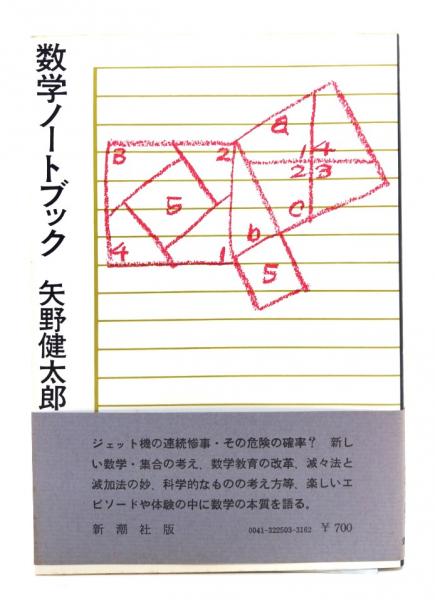 数学ノートブック
矢野健太郎
3
2
5
4
1
a
1 4
2 3
c
b
5
ジェット機の連続惨事・その危険の確率？　新し
い数学・集合の考え、数学教育の改革、減々法と
減加法の妙、科学的なものの考え方等、楽しいエ
ピソードや体験の中に数学の本質を語る。
新潮社版　0041-322503-3162　￥700